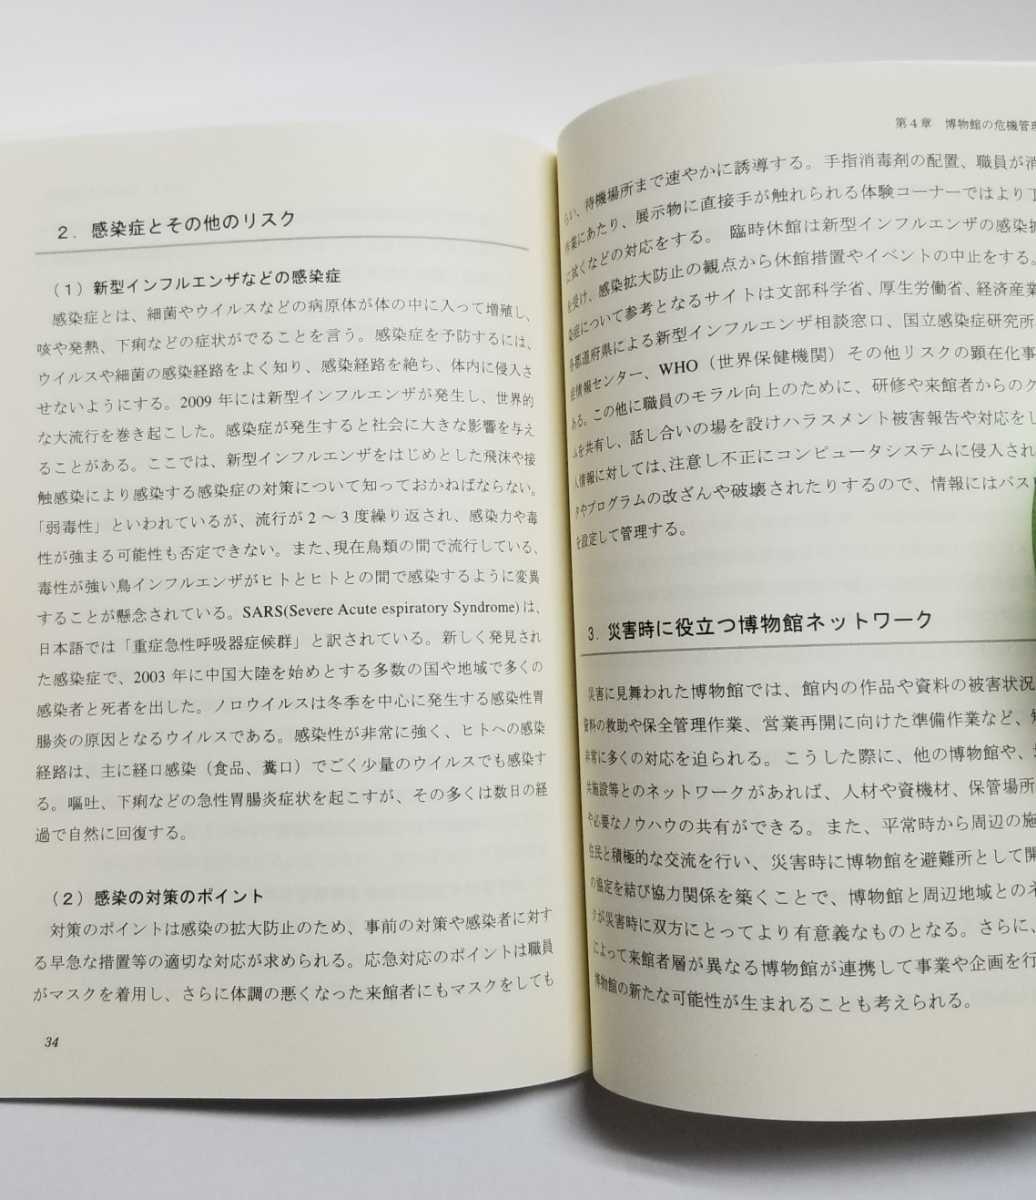 2. 感染症とその他のリスク
(1) 新型インフルエンザなどの感染症
感染症とは、細菌やウイルスなどの病原体が体の中に入って増殖し、
咳や発熱、下痢などの症状がでることを言う。感染症を予防するには、
ウイルスや細菌の感染経路をよく知り、感染経路を絶ち、体内に侵入さ
せないようにする。2009 年には新型インフルエンザが発生し、世界的
な大流行を巻き起こした。感染症が発生すると社会に大きな影響を与え
ることがある。ここでは、新型インフルエンザをはじめとした飛沫や接
触感染により感染する感染症の対策について知っておかねばならない。
「弱毒性」といわれているが、流行が 2 〜 3 度繰り返され、感染力や毒
性が強まる可能性も否定できない。また、現在鳥類の間で流行している、
毒性が強い鳥インフルエンザがヒトとヒトとの間で感染するように変異
することが懸念されている。SARS(Severe Acute espiratory Syndrome) は、
日本語では「重症急性呼吸器症候群」と訳されている。新しく発見され
た感染症で、2003 年に中国大陸を始めとする多数の国や地域で多くの
感染者と死者を出した。ノロウイルスは冬季を中心に発生する感染性胃
腸炎の原因となるウイルスである。感染性が非常に強く、ヒトへの感染
経路は、主に経口感染（食品、糞口）でごく少量のウイルスでも感染す
る。嘔吐、下痢などの急性胃腸炎症状を起こすが、その多くは数日の経
過で自然に回復する。
(2) 感染の対策のポイント
対策のポイントは感染の拡大防止のため、事前の対策や感染者に対す
る早急な措置等の適切な対応が求められる。応急対応のポイントは職員
がマスクを着用し、さらに体調の悪くなった来館者にもマスクをしても
34
第 4 章 博物館の危機管理
らい、待機場所まで速やかに誘導する。手指消毒剤の配置、職員が消
作業にあたり、展示物に直接手が触れられる体験コーナーではより丁
に拭くなどの対応をする。 臨時休館は新型インフルエンザの感染拡
を受け、感染拡大防止の観点から休館措置やイベントの中止をする。
染症について参考となるサイトは文部科学省、厚生労働省、経済産業
各都道府県による新型インフルエンザ相談窓口、国立感染症研究所
症情報センター、WHO（世界保健機関）その他リスクの顕在化事
ある。この他に職員のモラル向上のために、研修や来館者からのク
ムを共有し、話し合いの場を設けハラスメント被害報告や対応をし
人情報に対しては、注意し不正にコンピュータシステムに侵入され
タやプログラムの改ざんや破壊されたりするので、情報にはパス
を設定して管理する。
3. 災害時に役立つ博物館ネットワーク
災害に見舞われた博物館では、館内の作品や資料の被害状況
資料の救助や保全管理作業、営業再開に向けた準備作業など、
非常に多くの対応を迫られる。こうした際に、他の博物館や、
共施設等とのネットワークがあれば、人材や資機材、保管場所
や必要なノウハウの共有ができる。また、平常時から周辺の施
住民と積極的な交流を行い、災害時に博物館を避難所として開
の協定を結び協力関係を築くことで、博物館と周辺地域とのネ
クが災害時に双方にとってより有意義なものとなる。さらに、
によって来館者層が異なる博物館が連携して事業や企画を行
博物館の新たな可能性が生まれることも考えられる。